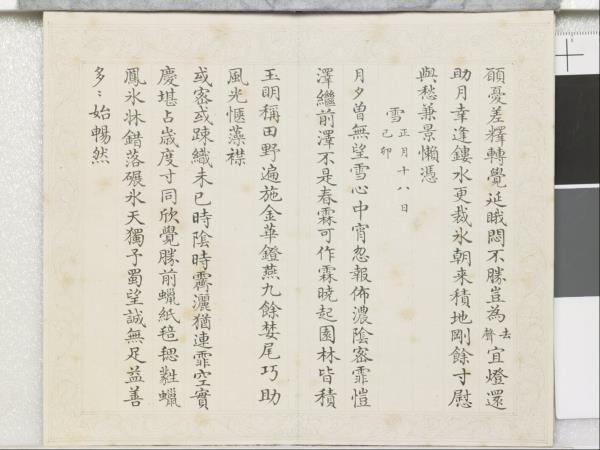 願憂差釋轉覺延眺悶不勝豈為去聲宜燈還
助月幸逢鏤水更裁氷朝来積地剛餘寸慰
與愁兼景懶憑
雪正月十八日己卯
月夕曽無望雪心中宵忽報佈濃陰密霏愷
澤繼前澤不是春霖可作霖曉起園林皆積
玉明稱田野遍施金華鐙燕九餘婪尾巧助
風光愜藻襟
或密或踈織未已時陰時霽灑猶連霏空實
慶堪占歲度寸同欣覺勝前蠟紙毰毸黏蠟
鳳氷牀錯落碾氷天獨予蜀望誠無足益善
多〻始暢然